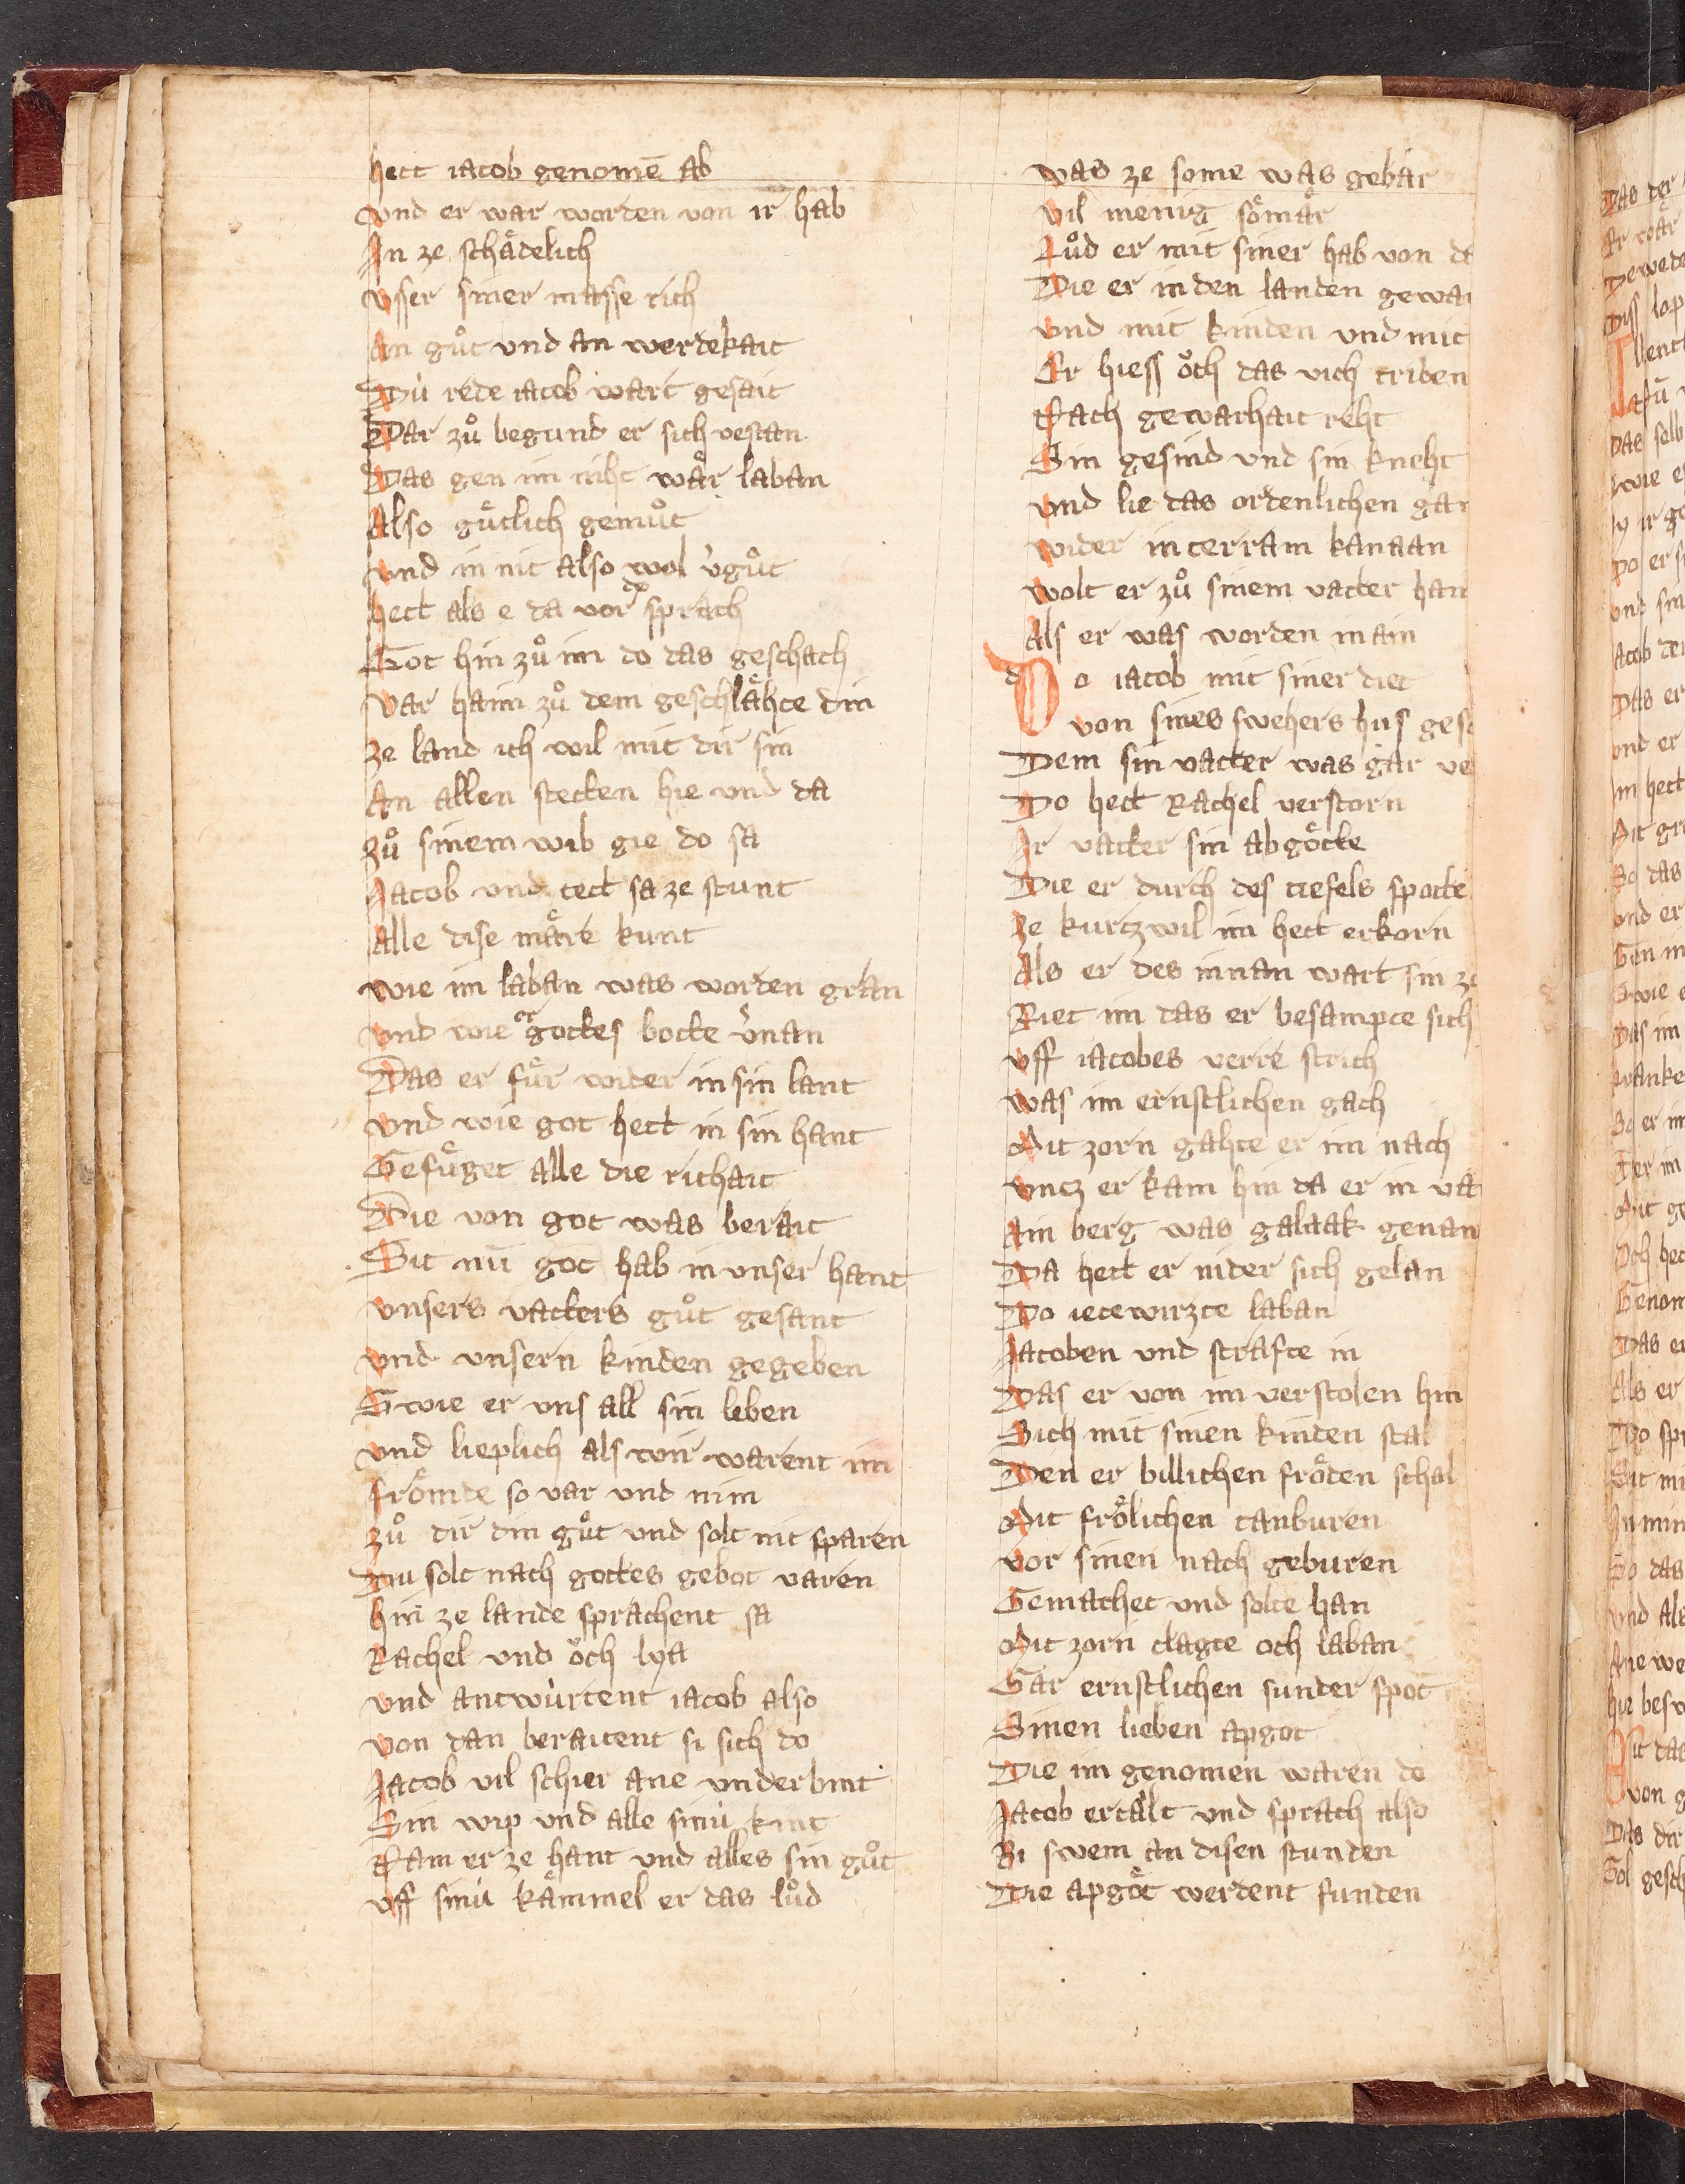 hett iacob genomē ab
vnd er war worden von ir hab
In ze schaͤdelich
vsser siner masse rich
An guͦt vnd an werdekait
Dú rede iacob wart gesait
Dar zuͦ begund er sich vestan
Das gen im niht waͤr laban
Also guͤtlich gemuͦt
vnd in nit also wol v̓guͦt
hett als e da vor sprach
Got hin zuͦ im do das geschach
var haim zuͦ dem geschlaͤhte din
ze land ich wil mit dir sin
An allen stetten hie vnd da
zuͦ sinem wib gie do sa
Jacob vnd tett sa ze stunt
Alle dise maͤre kunt
wie im laban was worden gran
vnd wie er gottes botte v̓nan
Das er fuͤr wider in sin lant
vnd wie got hett in sin hant
Gefuͤget alle die richait
Die von got was berait
Sit nu got hab in vnser hant
vnsers vatters guͦt gesant
vnd vnsern kinden gegeben
Swie er vns all sin leben
vnd lieplich als wir warent im
froͤmde so var vnd nim
zuͦ dir din guͦt vnd solt nit sparen
Du solt nach gottes gebot varen
hin ze lande sprachent sa
Rachel vnd oͤch lya
vnd antwúrtent iacob also
von dan beraitent si sich do
Jacob vil schier ane vnderbint
Sin wip vnd alle sinú kint
Nam er ze hant vnd alles sin guͦt
vff sinú kaͤmmel er das luͦd
was ze some was gebar
vil menig soͤmaͤr
Luͦd er mit siner hab von da
Die er in den landen gewa
vnd mit kinden vnd mit
Er hiess oͤch das vich triben
Nach gewarhait reht
Sin gesind vnd sin kneht
vnd lie das ordenlichen gan
wider in terram kanaan
wolt er zuͦ sinem vatter han
Als er was worden main
Do iacob mit siner diet
von sines swehers hus ges
Dem sin vatter was gar ve
Do hett Rachel verstorn
Ir vatter sin abgoͤtte
Die er durch des tiefels spotte
ze kurtzwil im hett erkorn
Als er des innan wart sin z
Riet im das er besampte sich
vff iacobes verre strich
was im ernstlichen gach
Mit zorn gahte er im nach
vntz er kam hin da er in va
Ain berg was galaak genan
Da hett er nider sich gelan
Do itewirzte laban
Jacoben vnd strafte in
Das er von im verstolen hin
Sich mit sinen kinden stal
Den er billichen froͤden schal
Mit froͤlichen tanburen
vor sinen nach geburen
Gemachet vnd solte han
Mit zorn clagte och laban
Gar ernstlichen sunder spot
Sinen lieben apgot
Die im genomen waren do
Jacob ertalt vnd sprach also
Bi swem an disen stunden
Die apgoͤt werdent funden